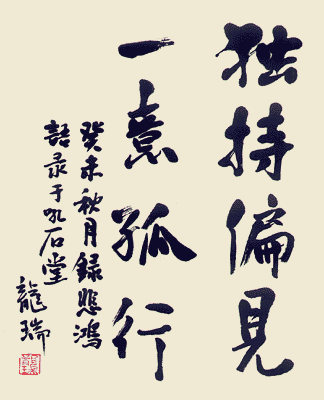 独持偏見
一意孤行
癸未秋月録悲鴻
語录于吼石堂
龍瑞